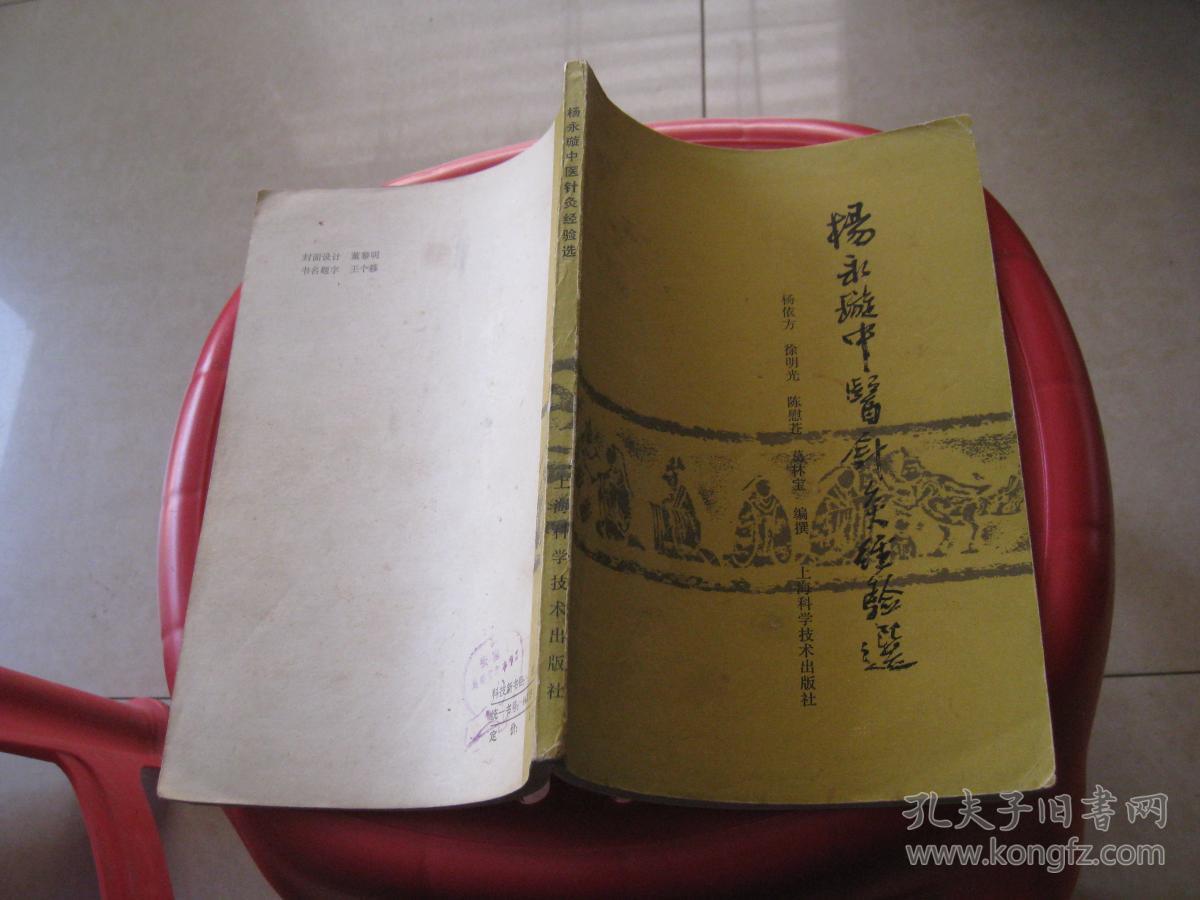 杨永璇中医针灸经验选
上海科学技术出版社
楊永璇中醫針灸經驗選
杨依方 徐明光 陈慰苍 葛林宝 编撰
上海科学技术出版社
封面设计 董黎明
书名题字 王个簃
科技新书目
统一书号
定 价
孔夫子旧书网
www.kongfz.com